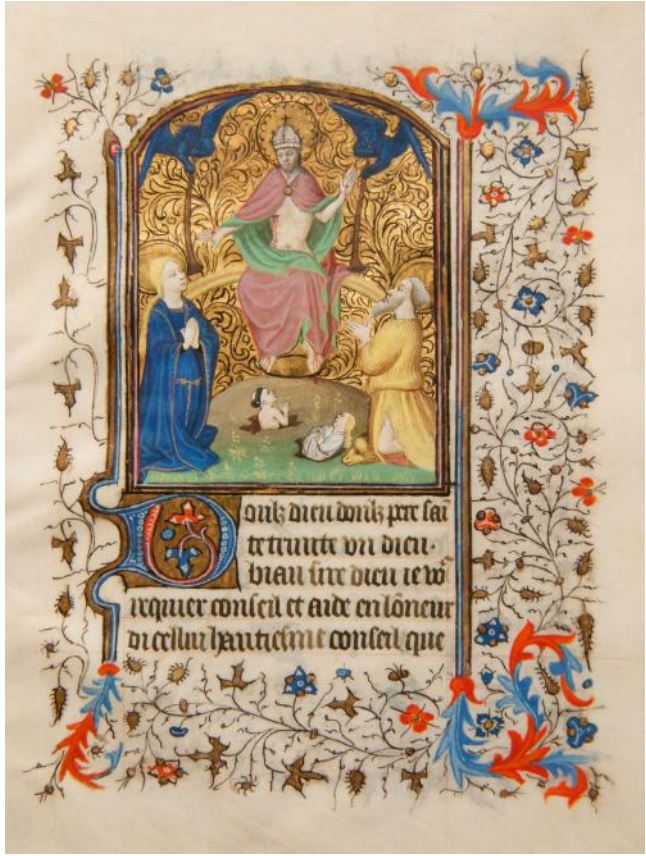 Doulz dieu doulz pere sai
te trinite vn dieu·
biau sire dieu ie voꝰ
requier conseil et aide en lōneur
di cellui conseil que